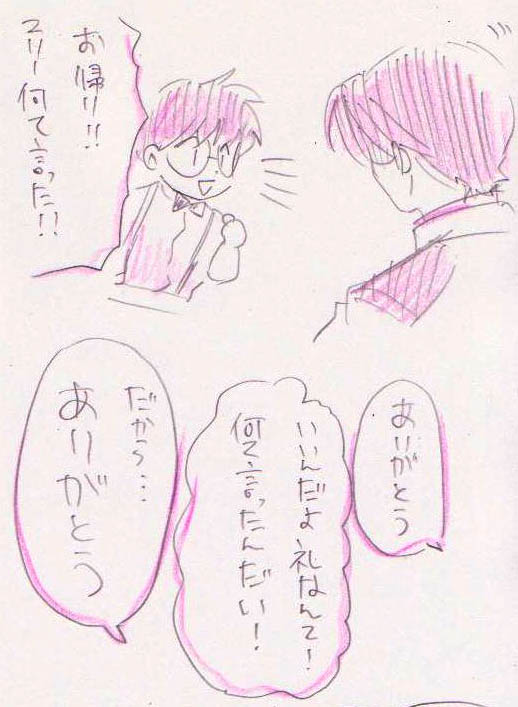 お帰り!!
ユリー何て言った!!
ありがとう
いいんだよ礼なんて!
何て言ったんだい!
だから…
ありがとう